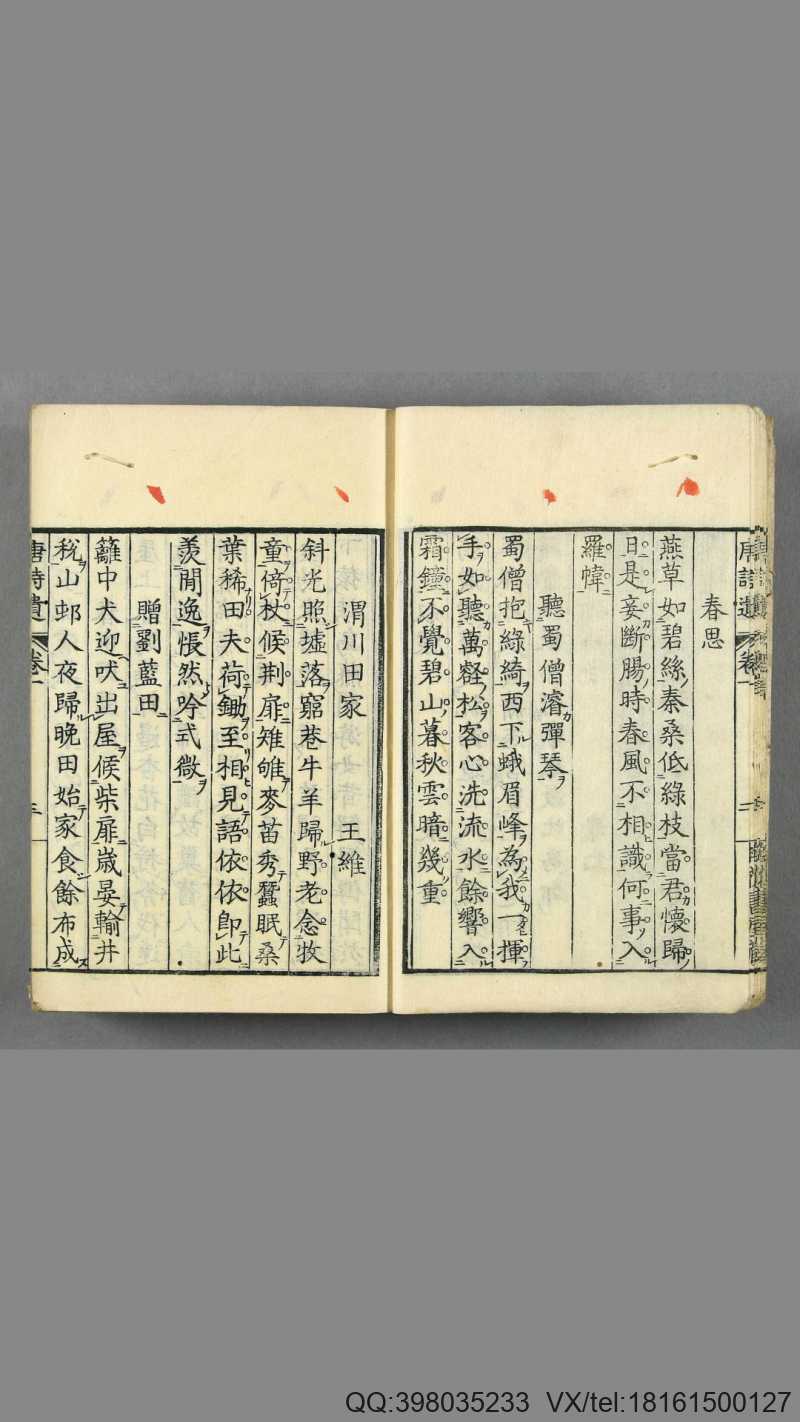 春思
燕草如碧絲秦桑低綠枝當君懷歸
日是妾斷腸時春風不相識何事入
羅幃
聽蜀僧濬彈琴
蜀僧抱綠綺西下峨眉峰為我一揮
手如聽萬壑松客心洗流水餘響入
霜鐘不覺碧山暮秋雲暗幾重
渭川田家 王維
斜光照墟落窮巷牛羊歸野老念牧
童倚杖候荆扉雉雊麥苗秀蠶眠桑
葉稀田夫荷鋤至相見語依依即此
羨閒逸悵然吟式微
贈劉藍田
籬中犬迎吠出屋候柴扉歲晏輸井
稅山邨人夜歸晚田始家食餘布成
唐詩遺 卷一
QQ:398035233 VX/tel:18161500127